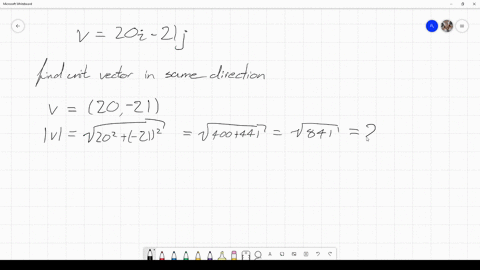 Microsoft Whiteboard
v = 20i - 21j
find unit vector in same direction
v = (20, -21)
|v| = √20² + (-21)² = √400+441 = √841 = ?